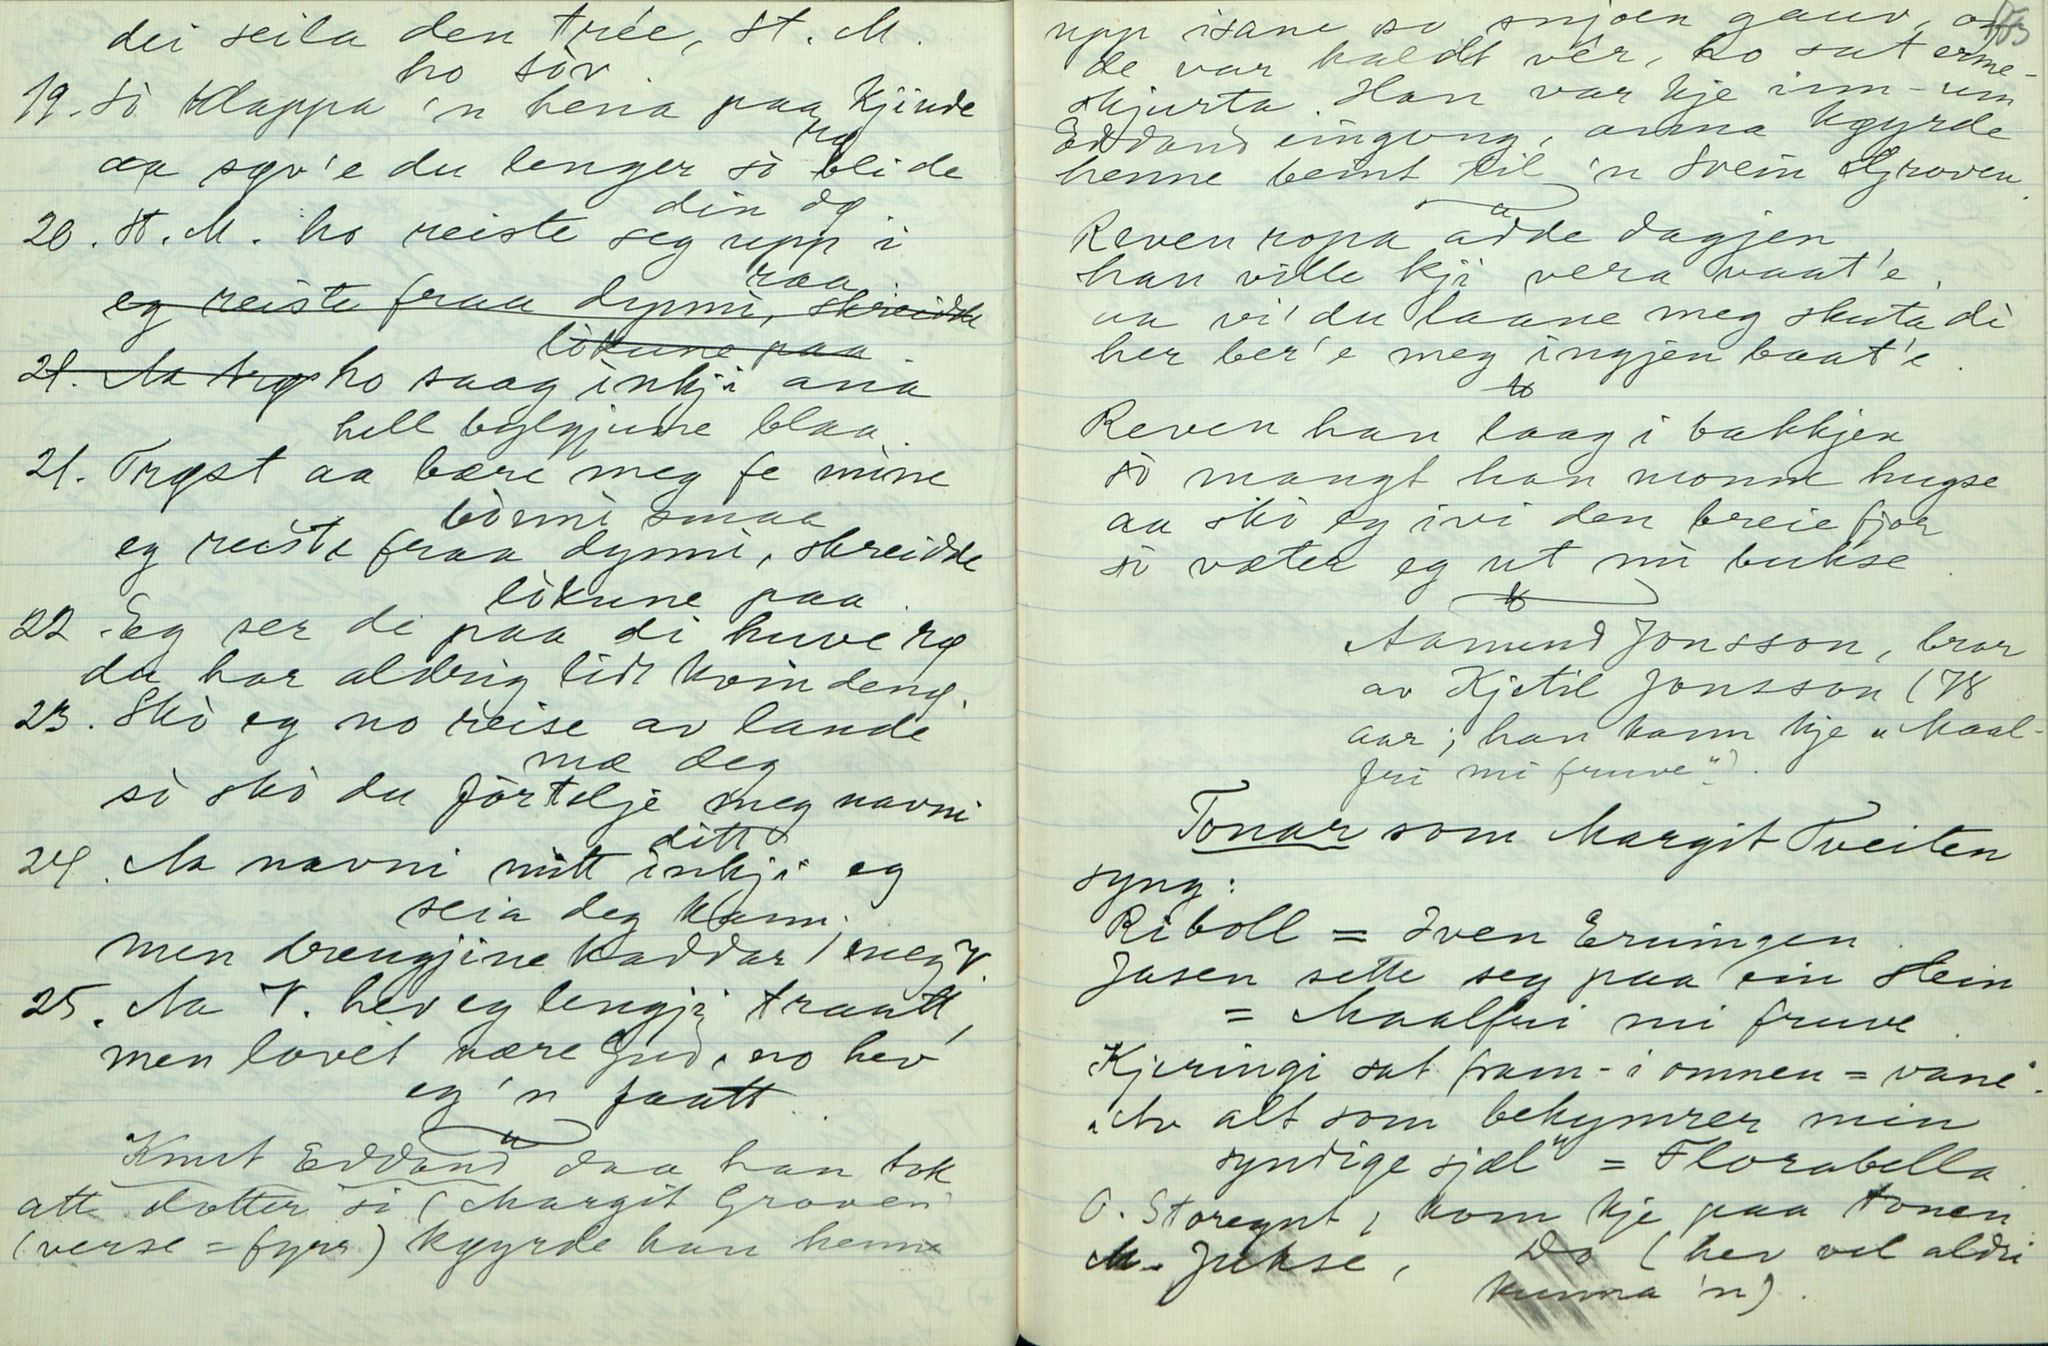 dei seila den trée, St. M.
ho sòv.
19. Sò klappa 'n hena paa kjinde
rø
aa søv 'e du lenger sò bli de
din dø
20. St. M. ho reiste seg upp i
raa
eg reiste fraa dynni, skreidde
lòkune paa.
21. Aa trø ho saag inkji ana
hell bylgjune blaa.
21. Trøst aa bære meg fe mine
bònni smaa
eg reiste fraa dynni, skreidde
lòkune paa.
22. Eg ser de paa di huve rø
du har aldrig lidt kvindenø.
23. Skò eg no reise av lande
mæ deg
sò skò du fòrtelje meg navni
ditt
24. Aa navni mitt inkji eg
seia deg kann,
men drengjine kaddar meg V.
25. Aa V. hev eg lengji traatt,
men lovet være Gud, no hev
eg 'n faatt.
Knut Eddand daa han tok
att dotter si (Margit Groven
(verse = fyrr) køyrde han henne
upp isane so snjoen gauv, og
de var kaldt vér, ho sat erme-
skjurta. Han var kje inn-um
Eddand eingong, anna køyrde
henne beint til 'n Svein Groven.
Reven ropa adde dagjen
han ville kji vera vaat'e,
aa vi' du laane meg skuta di
her ber'e meg ingjen baat'e.
Reven han laag i bakkjen
sò mangt han monne hugse
aa skò eg ivi den breie fjor
sò væter eg ut mi bukse.
Aamund Jonsson, bror
av Kjetil Jonsson (78
aar; han kann kje "Maal-
fri mi fruve").
Tonar som Margit Tveiten
syng:
Riboll = Iven Erningen.
Jasen sette seg paa ein stein
= Maalfri mi fruve.
Kjeringi sat fram-i omnen = vane.
"Av alt som bekymrer min
syndige sjæl" = Florabella.
O. Storegut, kom kje paa tonen
M. Jukse, Do (hev vel aldri
kunna 'n).